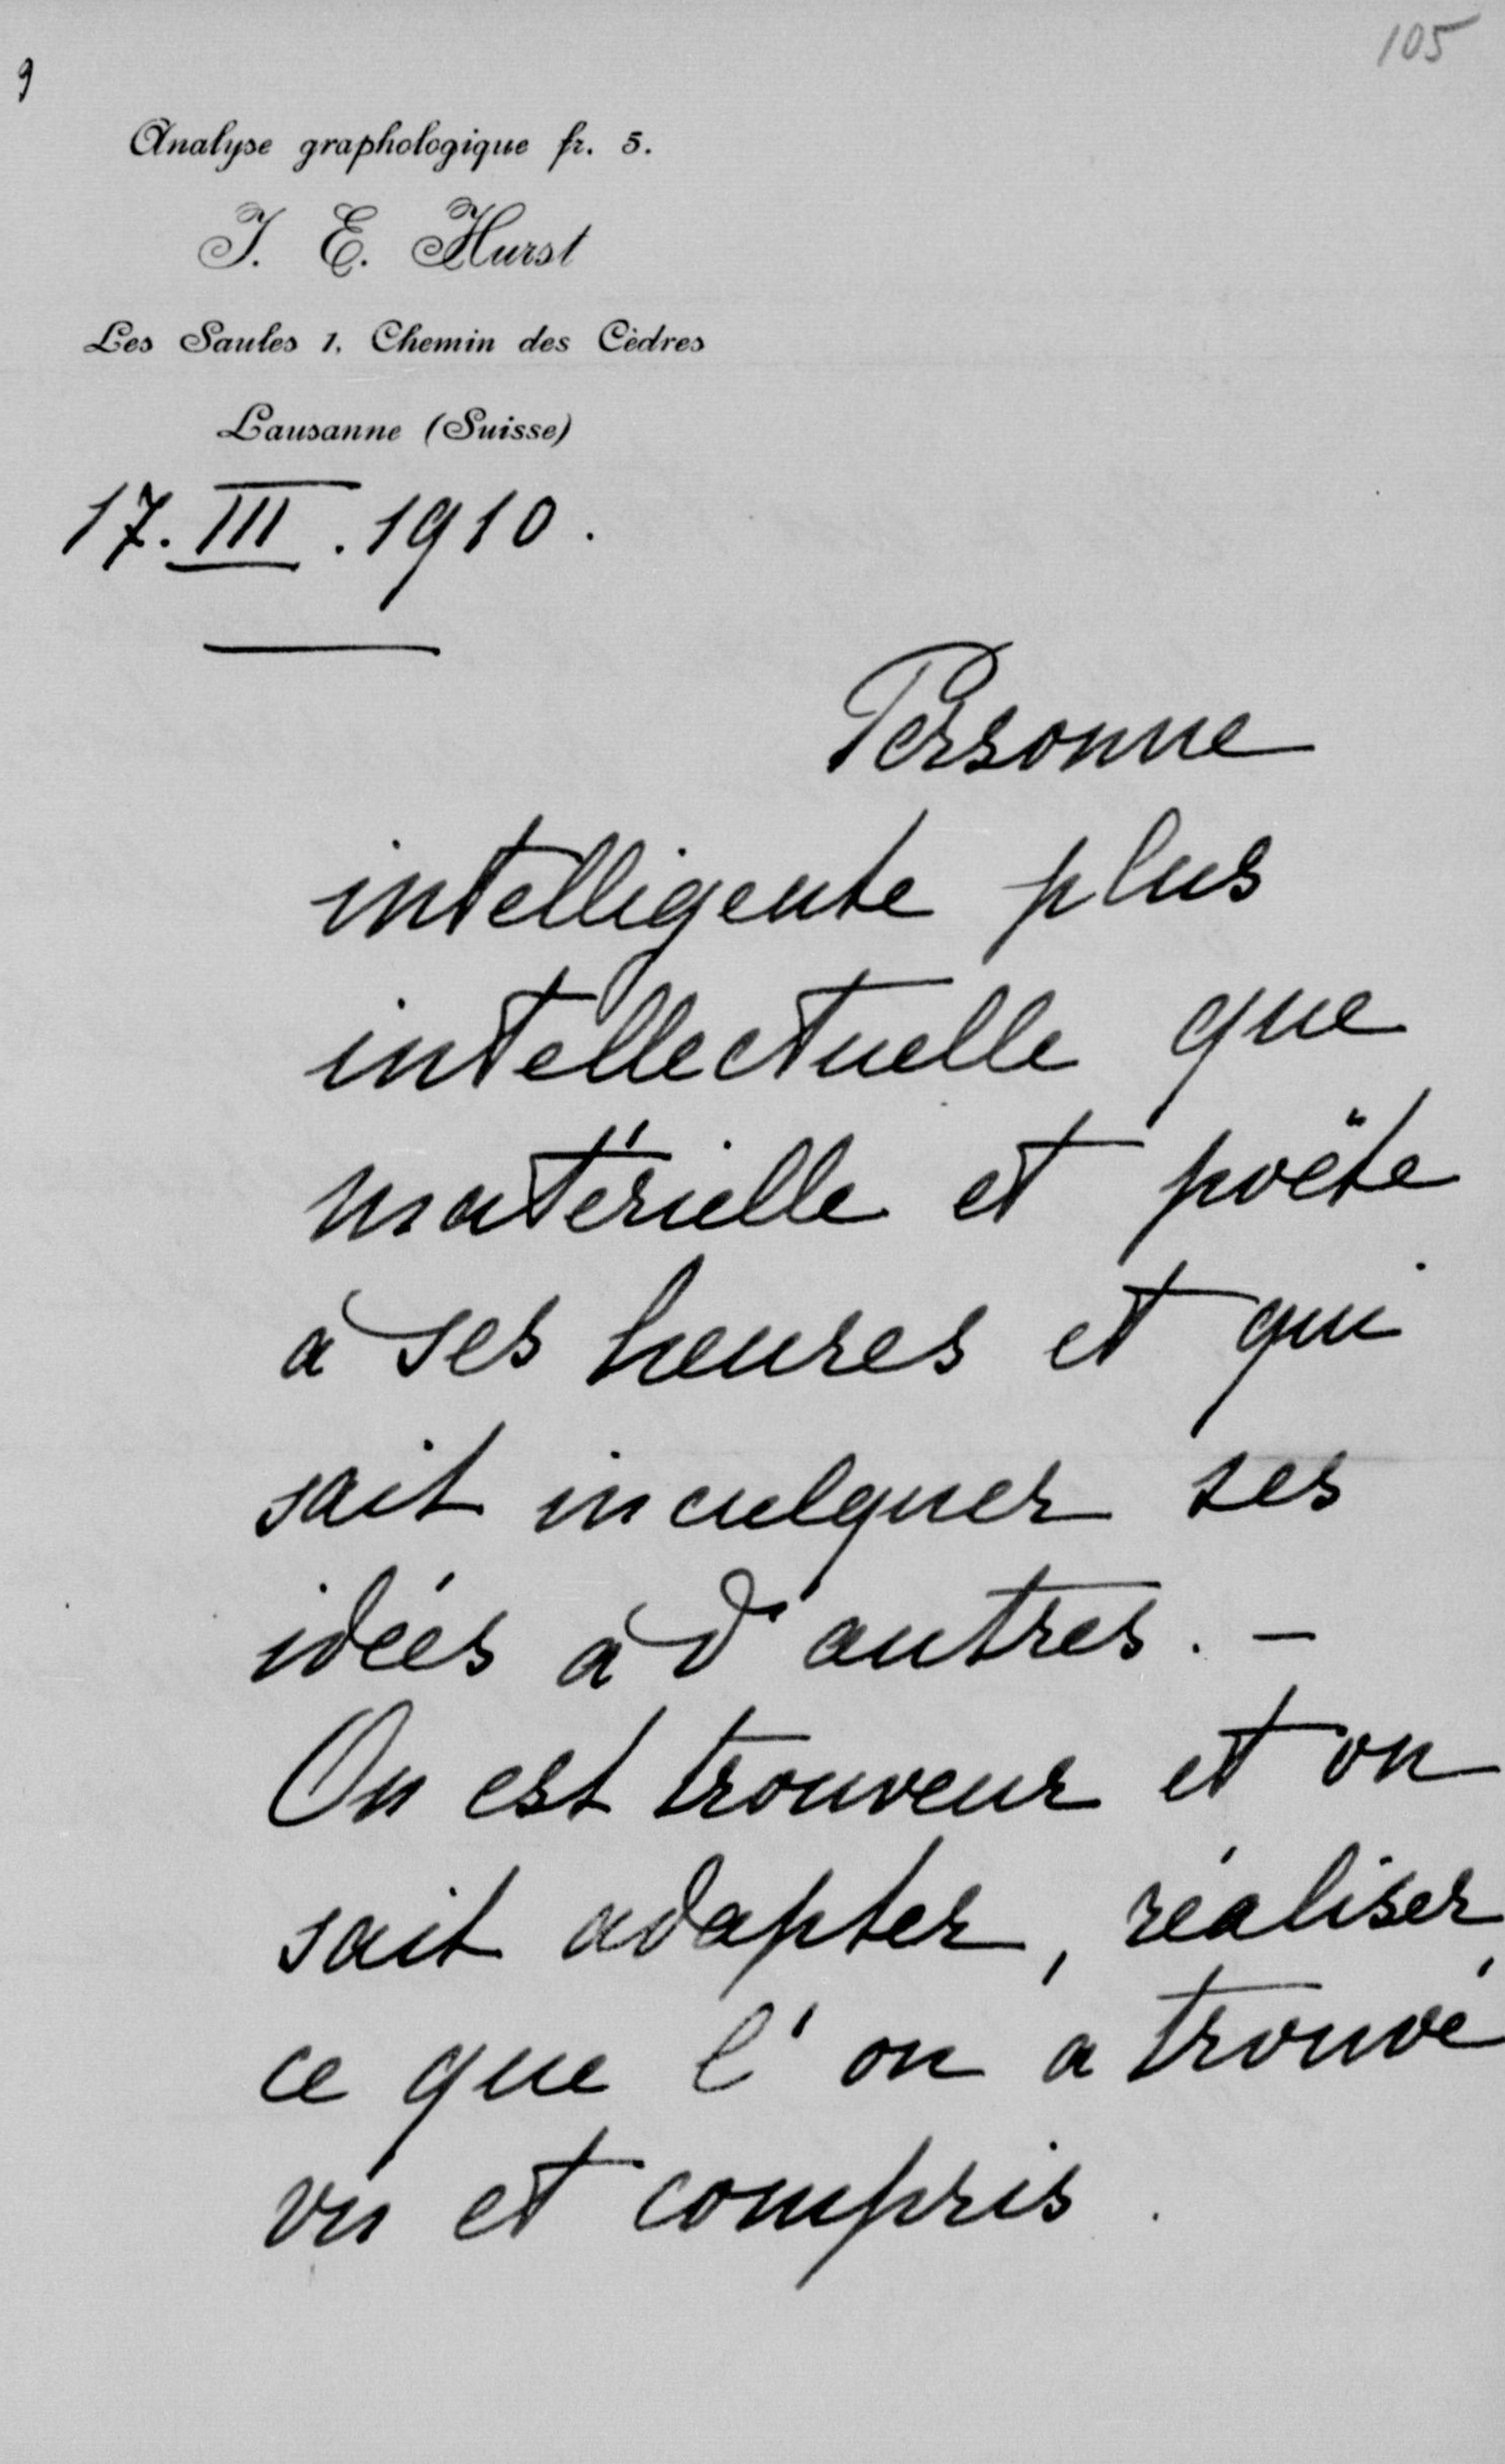 105
9
Analyse graphologique fr. 5.
J. E. Hurst
Les Saules 1, Chemin des Cèdres
Lausanne (Suisse)
17. III. 1910.
Personne
intelligente plus
intellectuelle que
matérielle et poëte
à ses heures et qui
sait inculquer ses
idées à d'autres. –
On est trouveur et on
sait adapter, réaliser
ce que l'on a trouvé
vu et compris.